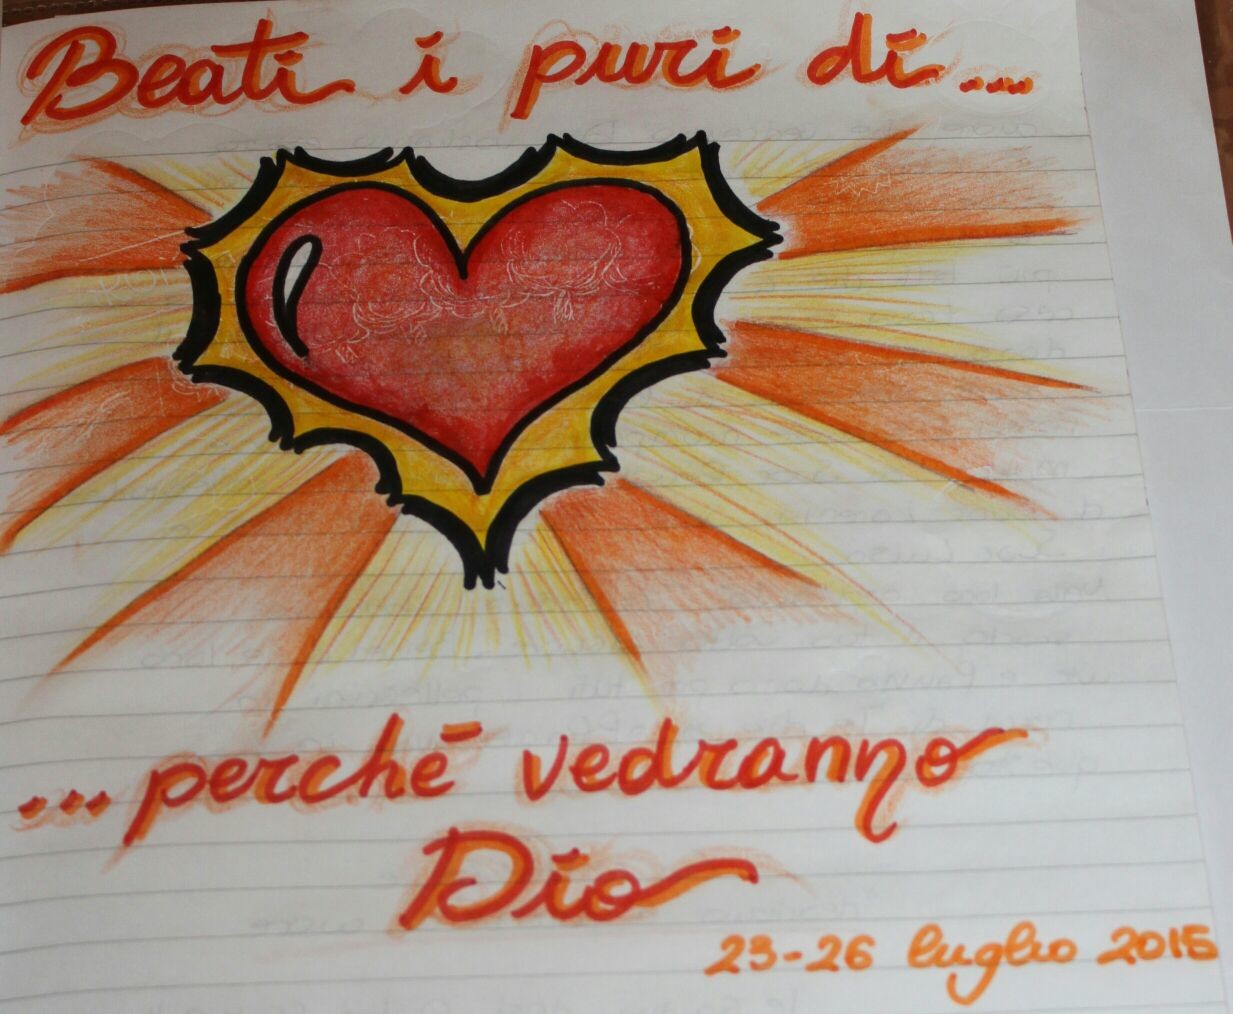 Beati i puri di....
...perchè vedranno
Dio
23-26 luglio 2015